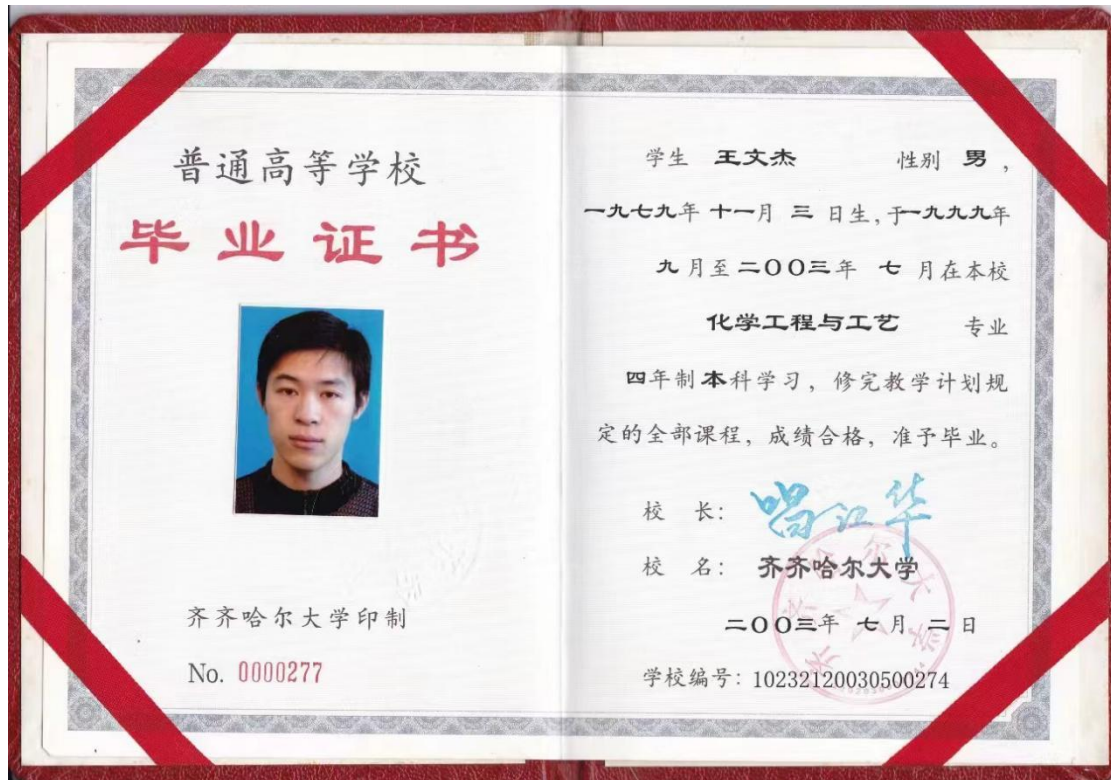 普通高等学校
毕业证书
齐齐哈尔大学印制
No. 0000277
学生 王文杰 性别 男，
一九七九年 十一月 三 日生，于一九九九年
九月至二〇〇三年 七 月在本校
化学工程与工艺 专业
四年制本科学习，修完教学计划规
定的全部课程，成绩合格，准予毕业。
校 长：
校 名： 齐齐哈尔大学
二〇〇三年 七 月 二 日
学校编号：10232120030500274